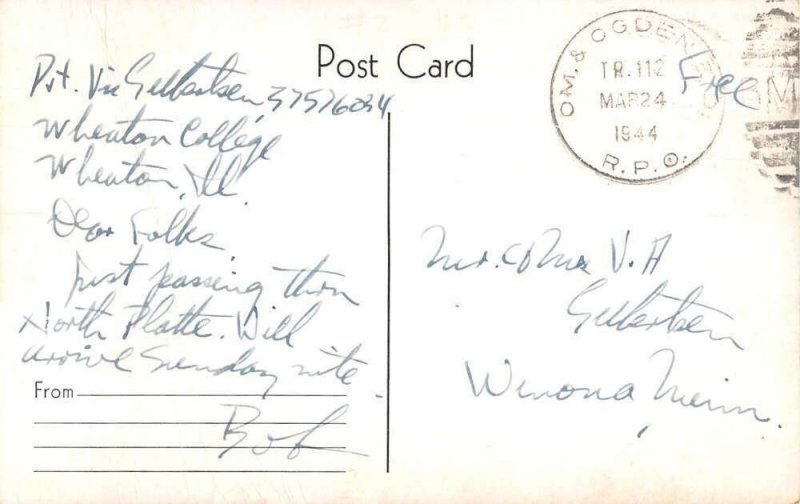 Post Card
OM. & OGDEN
TR. 112
MAR 24
1944
R.P.O.
Free
M
Pvt. Vic Gilbertsen, 37576034
Wheaton College
Wheaton, Ill.
Dear Folks,
Just passing thru
North Platte. Will
arrive Sunday nite.
Bob
From
Mr. & Mrs. V. A
Gilbertsen
Winona Minn.